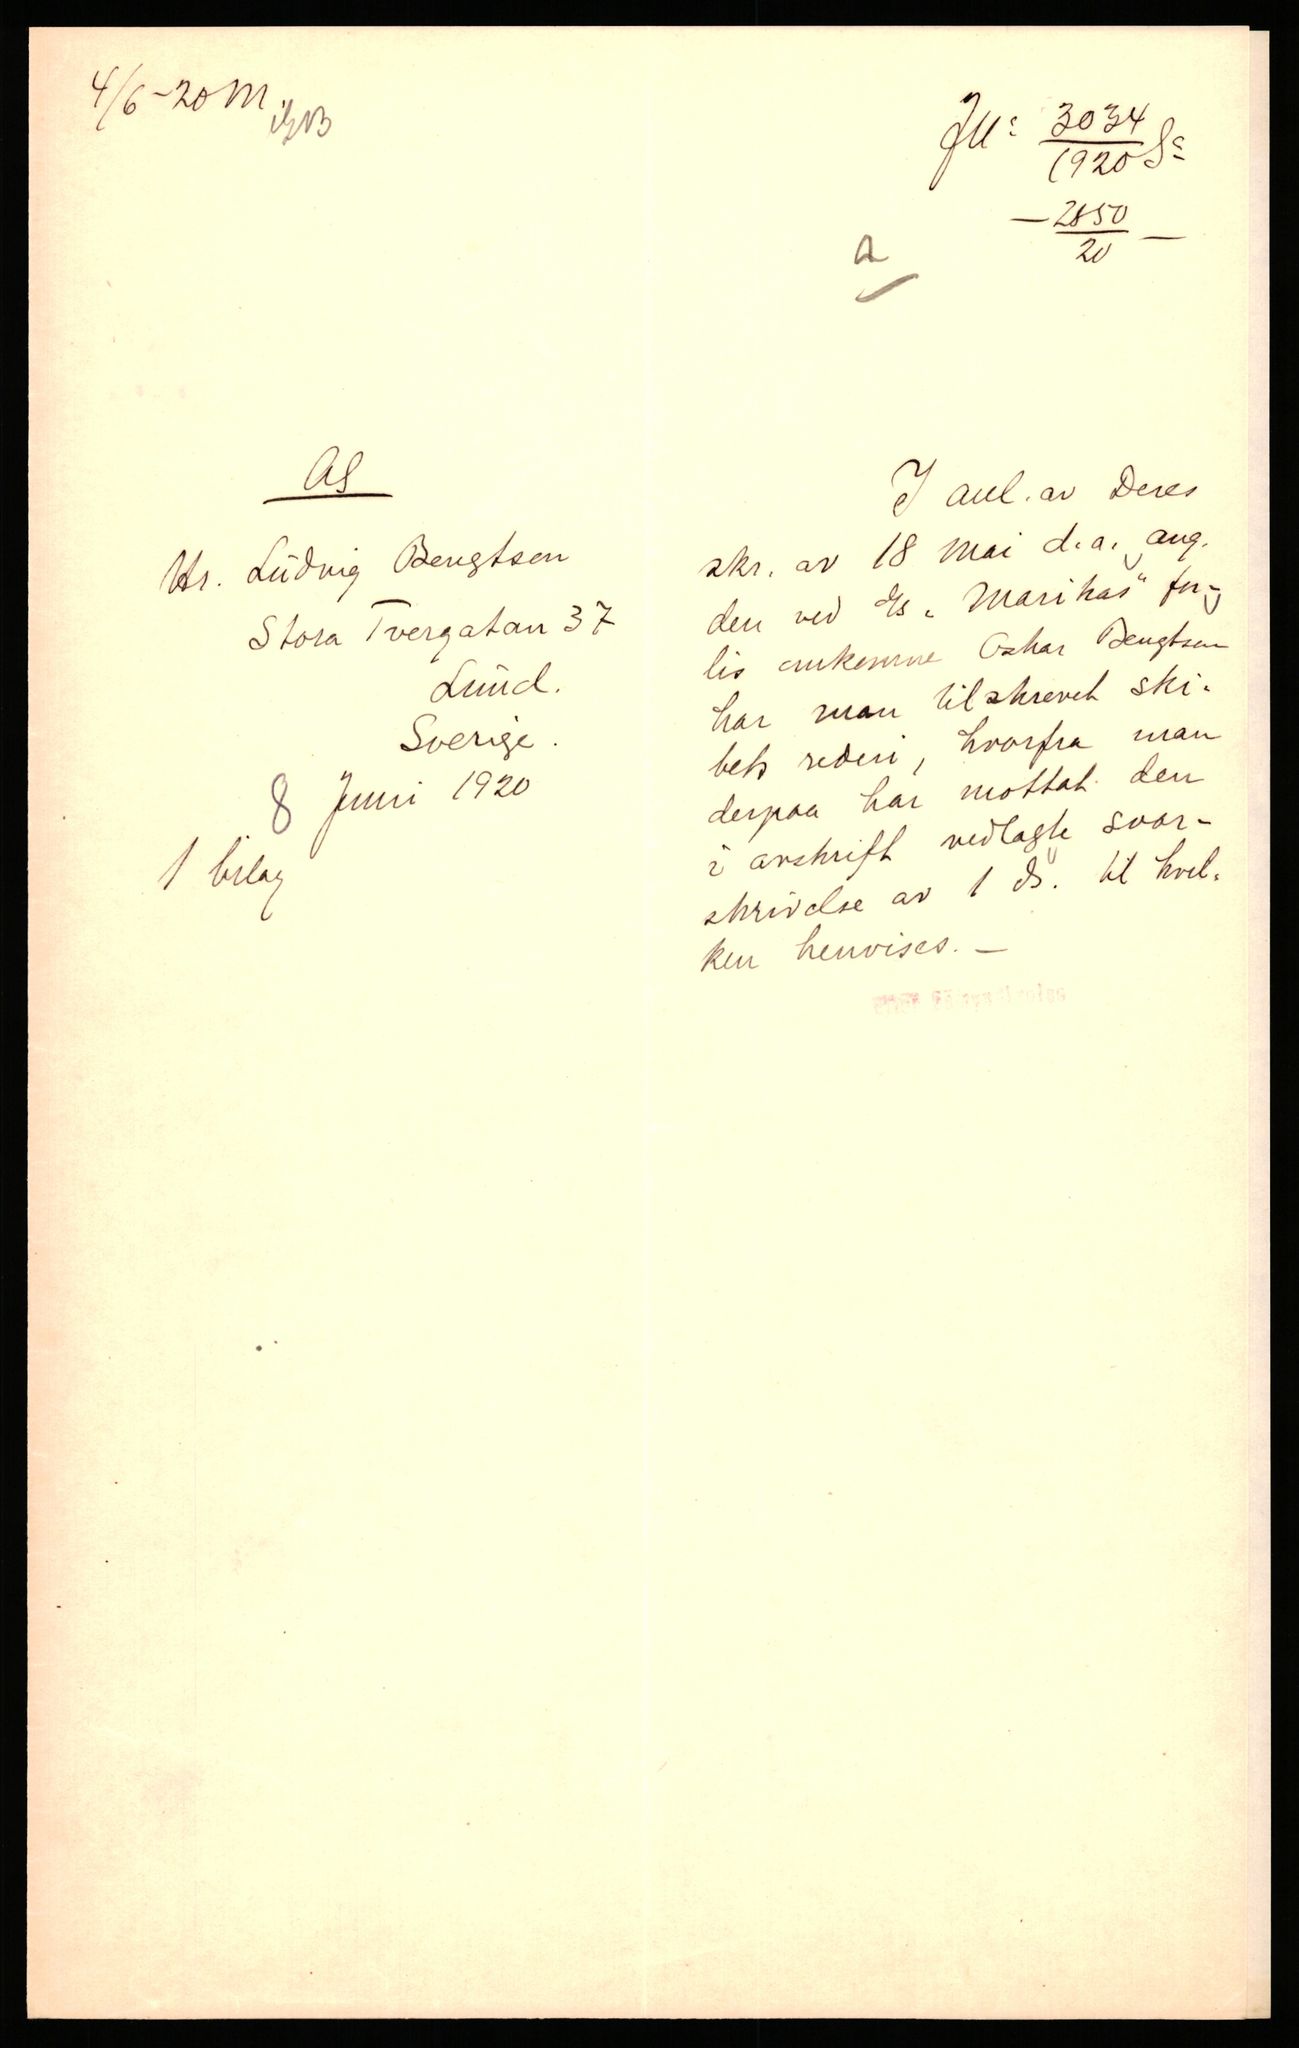 4/6-20 M.
JN: 3034
1920 S:
— 2850 —
20
a
AS
Hr. Ludvig Bengtsen
Stora Tvergatan 37
Lund.
Sverige.
8 Juni 1920
1 bilag
I anl. av Deres
skr. av 18 Mai d.a. ang.
den ved D/s „Marikas" for-
lis omkomne Oskar Bengtsen
har man tilskrevet ski-
bets rederi, hvorfra man
derpaa har mottat den
i avskrift vedlagte svar-
skrivelse av 1 ds. til hvil-
ken henvises. —